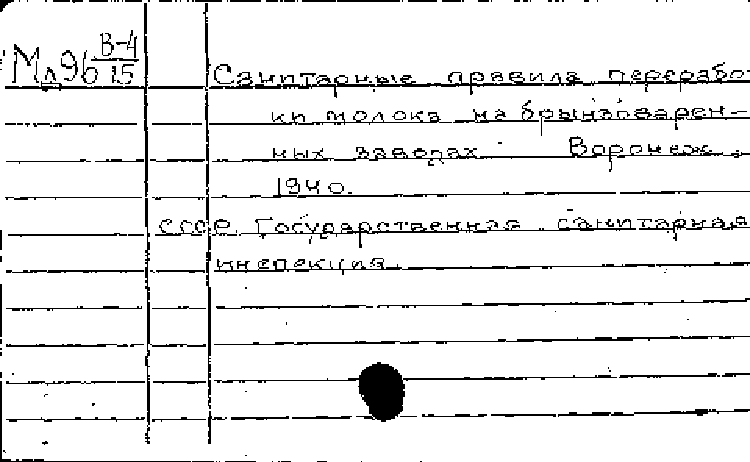 Мл96 В-4/15
Санитарные правила переработ
ки молока на брынзоварен-
ных заводах. Воронеж,
1940.
СССР. Государственная санитарная
инспекция.